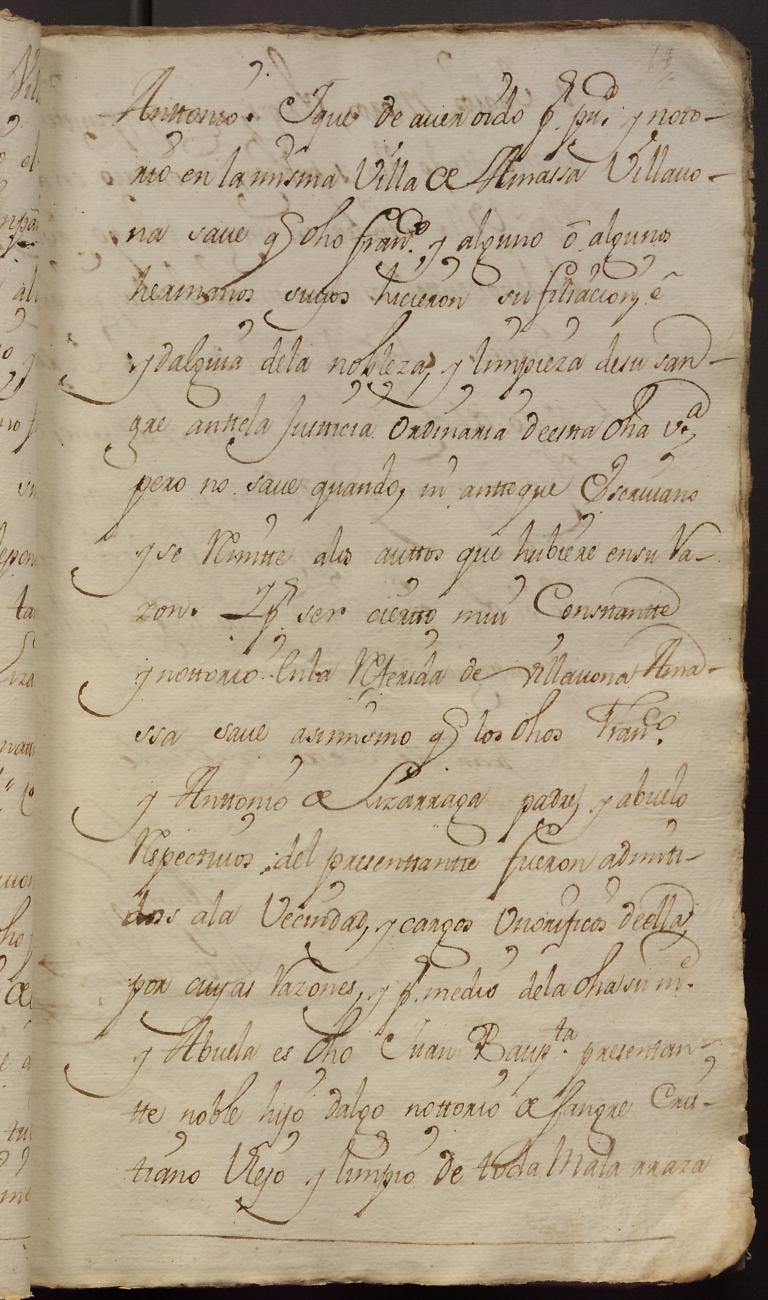 Anttonio. Ique de aver oido p.r pu.co y noto-
rio en la misma Villa de Amassa Villavo-
na save q̃ dho fran.co y alguno ō algunos
hermanos suyos hicieron su filiacion, ê
ydalguia dela nobleza, y limpieza desu san-
gre antte la Justticia Ordinaria de estta dha v.a
pero no save quando, ni antte que Escrivano
y se Remitte alos auttos que hubiere en su Ra-
zon. I p.r ser cierto mui Consttantte
y nottorio en la Referida de Villavona Ama-
ssa save asimismo q̃ los dhos Fran.co
y Anttonio de Lizarraga padre, y abuelo
Respectivos del presenttantte fueron admiti-
dos ala Vecindad, y cargos Onorificos de ella,
por cuyas Razones, y p.r medio dela dha su m.e
y Abuela es dho Juan Baup.ta presentan-
tte noble hijo dalgo nottorio de sangre Cris-
tiano Viejo y limpio de toda Mala rraza